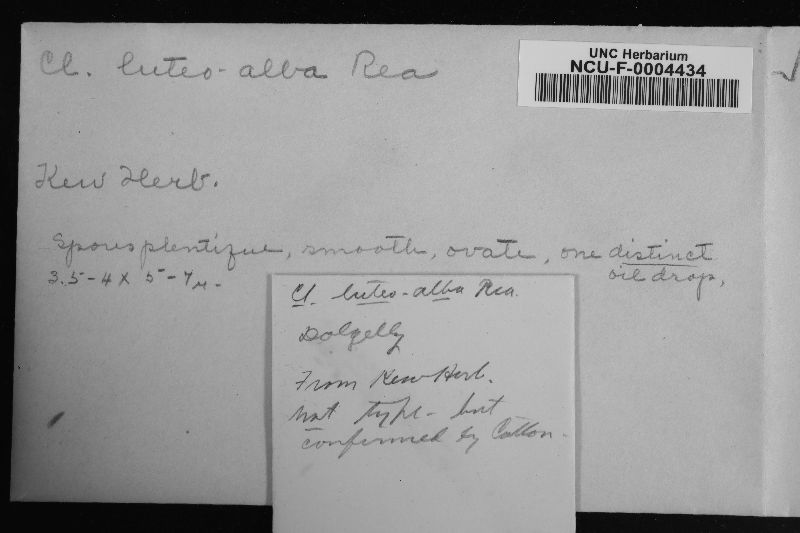 Cl. luteo-alba Rea
UNC Herbarium
NCU-F-0004434
Kew Herb.
Spores plentiful, smooth, ovate, one distinct
oil drop,
3.5-4 x 5-7µ-
Cl. luteo-alba Rea.
Dolgelly
From Kew Herb.
Not type - but
confirmed by Cotton.